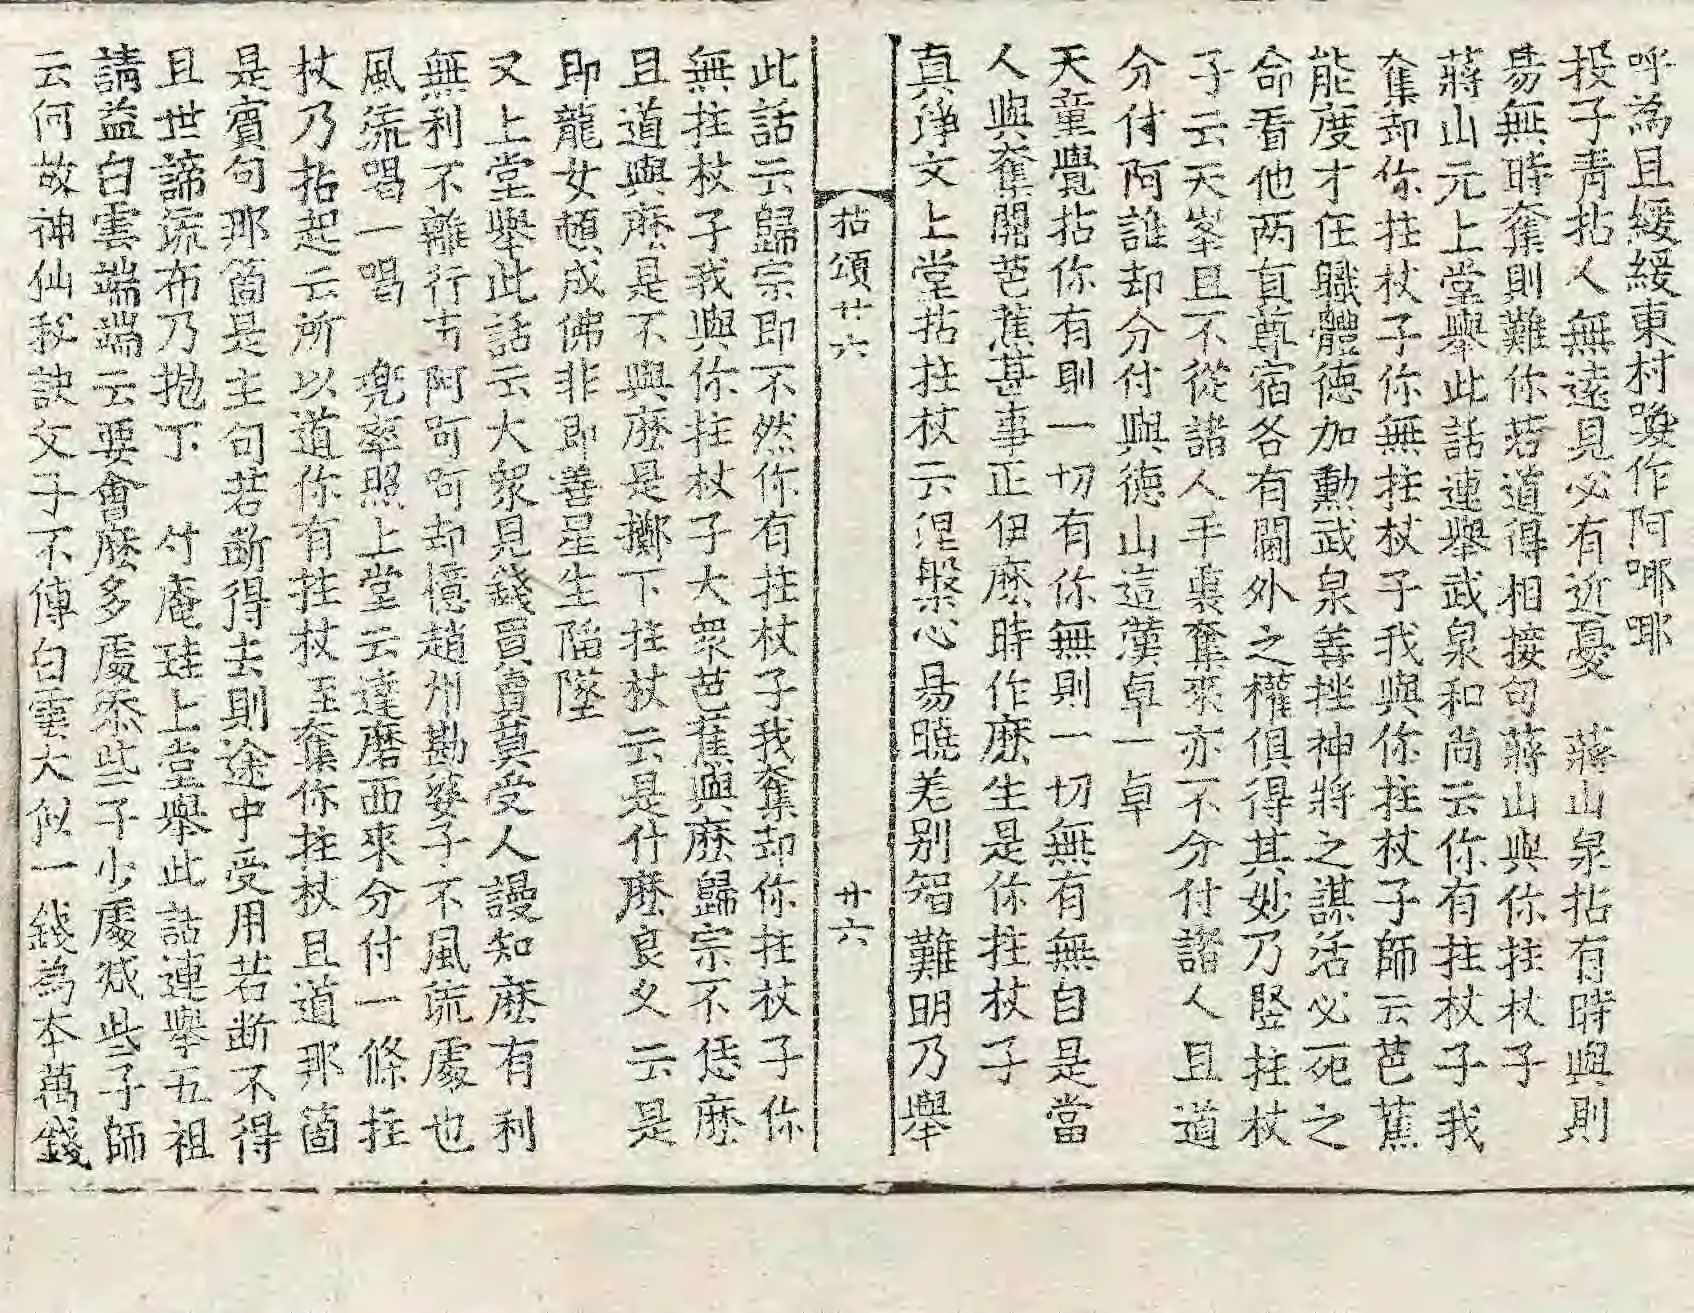 呼為且緩緩東村喚作阿㖿㖿
投子青拈人無遠見必有近憂 蔣山泉拈有時與則
易無時奪則難你若道得相接句蔣山與你拄杖子
蔣山元上堂舉此話連舉武泉和尚云你有拄杖子我
奪却你拄杖子你無拄杖子我與你拄杖子師云芭蕉
能度才任職體德加勳武泉善挫神將之謀活必死之
命看他两負尊宿各有閫外之權俱得其妙乃竪拄杖
子云天峯且不從諸人手裏奪來亦不分付諸人且道
分付阿誰却分付與德山這漢卓一卓
天童覺拈你有則一切有你無則一切無有無自是當
人與奪關芭蕉甚事正伊麽時作麽生是你拄杖子
真淨文上堂拈拄杖云涅槃心易曉差別智難明乃舉
拈頌廿六 廿六
此話云歸宗即不然你有拄杖子我奪却你拄杖子你
無拄杖子我與你拄杖子大衆芭蕉與麽歸宗不恁麽
且道與麽是不與麽是擲下拄杖云是什麽良久云是
即龍女頓成佛非即善星生陷墜
又上堂舉此話云大衆見錢買賣莫受人謾知麽有利
無利不離行市阿呵呵却憶趙州勘婆子不風流處也
風流唱一唱 兜率照上堂云達磨西來分付一條拄
杖乃拈起云所以道你有拄杖至奪你拄杖且道那箇
是賓句那箇是主句若断得去則途中受用若断不得
且世諦流布乃抛下 竹庵珪上堂舉此話連舉五祖
請益白雲端端云要會麽多處添些子少處减些子師
云何故神仙秘訣父子不傳白雲大似一錢為本萬錢